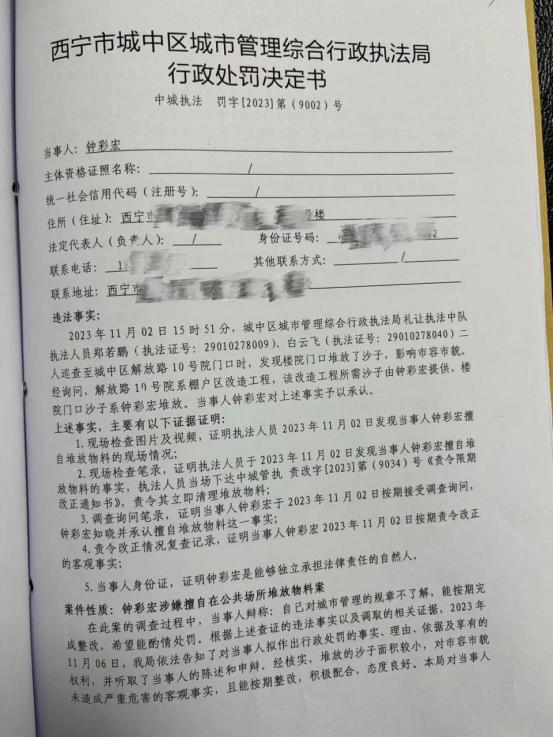 西宁市城中区城市管理综合行政执法局
行政处罚决定书
中城执法 罚字[2023]第(9002)号
当事人：钟彩宏
主体资格证照名称： /
统一社会信用代码（注册号）： /
住所（住址）：西宁市 号楼
法定代表人（负责人）： / 身份证号码： 2
联系电话：18 其他联系方式： /
联系地址：西宁市
违法事实：
2023年11月02日15时51分，城中区城市管理综合行政执法局礼让执法中队
执法人员郑若鹏（执法证号：29010278009）、白云飞（执法证号：29010278040）二
人巡查至城中区解放路10号院门口时，发现楼院门口堆放了沙子，影响市容市貌。
经询问，解放路10号院系棚户区改造工程，该改造工程所需沙子由钟彩宏提供，楼
院门口沙子系钟彩宏堆放。当事人钟彩宏对上述事实予以承认。
上述事实，主要有以下证据证明：
1.现场检查图片及视频，证明执法人员2023年11月02日发现当事人钟彩宏擅
自堆放物料的现场情况；
2.现场检查笔录，证明执法人员于2023年11月02日发现当事人钟彩宏擅自堆
放物料的事实，执法人员当场下达中城管执 责改字[2023]第(9034)号《责令限期
改正通知书》，责令其立即清理堆放物料；
3.调查询问笔录，证明当事人钟彩宏于2023年11月02日按期接受调查询问，
钟彩宏知晓并承认擅自堆放物料这一事实；
4.责令改正情况复查记录，证明当事人钟彩宏2023年11月02日按期责令改正
的客观事实；
5.当事人身份证，证明钟彩宏是能够独立承担法律责任的自然人。
案件性质：钟彩宏涉嫌擅自在公共场所堆放物料案
在此案的调查过程中，当事人辩称：自己对城市管理的规章不了解，能按期完
成整改，希望能酌情处罚。根据上述查证的违法事实以及调取的相关证据，2023年
11月06日，我局依法告知了对当事人拟作出行政处罚的事实、理由、依据及享有的
权利，并听取了当事人的陈述和申辩。经核实，堆放的沙子面积较小，对市容市貌
未造成严重危害的客观事实，且能按期整改，积极配合，态度良好。本局对当事人